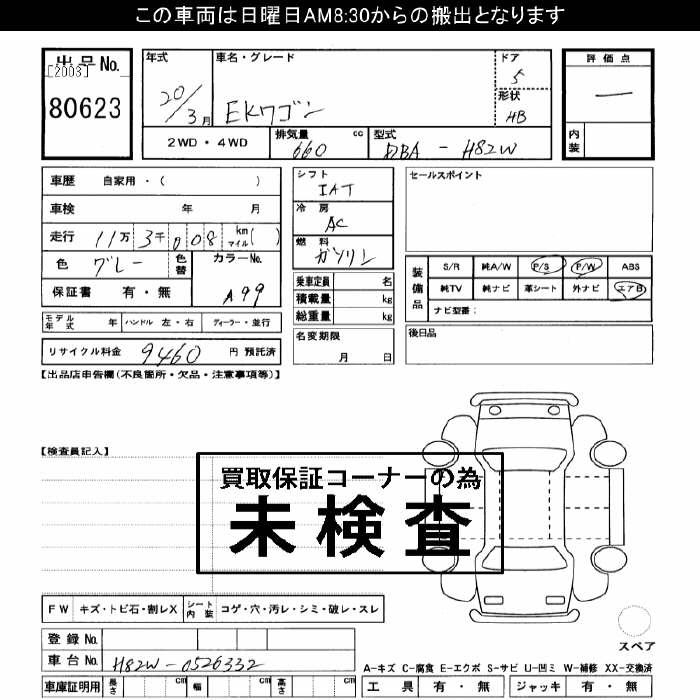 この車両は日曜日AM8:30からの搬出となります
出品No.
[2003]
80623
年式
20/3月
車名・グレード
EKワゴン
ドア
5
形状
HB
評価点
—
内装
2WD・4WD
排気量
660 cc
型式
DBA - H82W
車歴 自家用・( )
車検 年 月
走行 11万3千008 km マイル( )
色 グレー 色替
カラーNo.
A99
保証書 有・無
モデル年式 年 ハンドル 左・右 ディーラー・並行
リサイクル料金 9460 円 預託済
シフト
IAT
冷房
AC
燃料
ガソリン
乗車定員 名
積載量 kg
総重量 kg
名変期限
月 日
セールスポイント
装備品
S/R 純A/W P/S P/W ABS
純TV 純ナビ 革シート 外ナビ エアB
ナビ型番:
後日品
【出品店申告欄(不良箇所・欠品・注意事項等)】
【検査員記入】
買取保証コーナーの為
未検査
FW キズ・トビ石・割レX シート内装 コゲ・穴・汚レ・シミ・破レ・スレ
登録No.
車台No. H82W-0526332
車庫証明用 長さ cm 幅 cm 高さ cm
スペア
A-キズ C-腐食 E-エクボ S-サビ U-凹ミ W-補修 XX-交換済
工具 有・無 ジャッキ 有・無